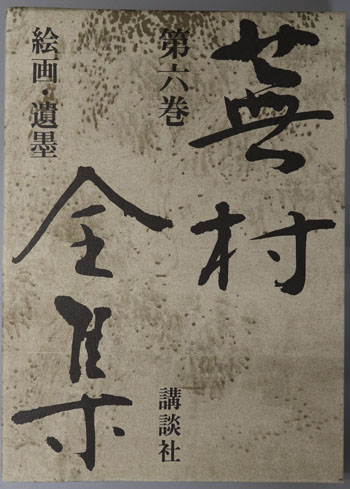 蕪村
全集
第六巻
絵画・遺墨
講談社